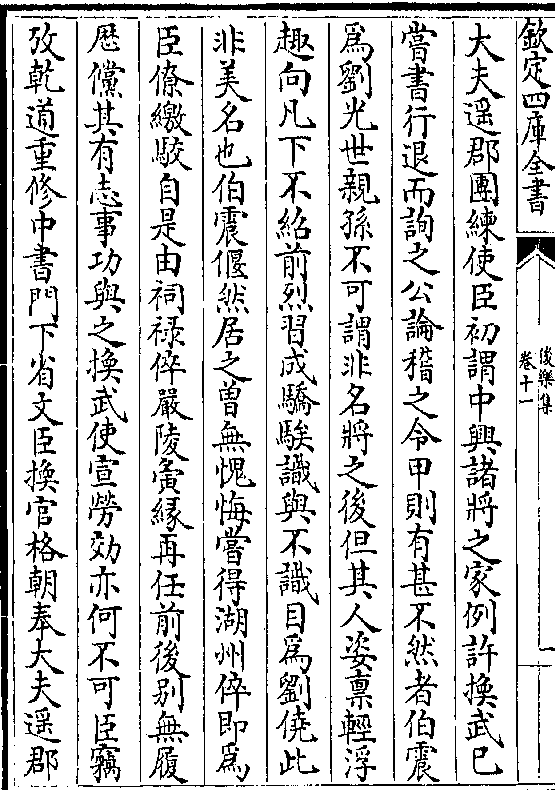 欽定四庫全書
後樂集
卷十一
大夫遥郡團練使臣初謂中興諸將之家例許換武已
嘗書行退而詢之公論稽之令甲則有甚不然者伯震
為劉光世親孫不可謂非名將之後但其人姿禀輕浮
趣向凡下不紹前烈習成驕騃識與不識目為劉僥此
非美名也伯震偃然居之曽無愧悔嘗得湖州倅即為
臣僚繳駮自是由祠禄倅嚴陵夤緣再任前後别無履
歴儻其有志事功與之換武使宣勞効亦何不可臣竊
攷乾道重修中書門下省文臣換官格朝奉大夫遥郡
一